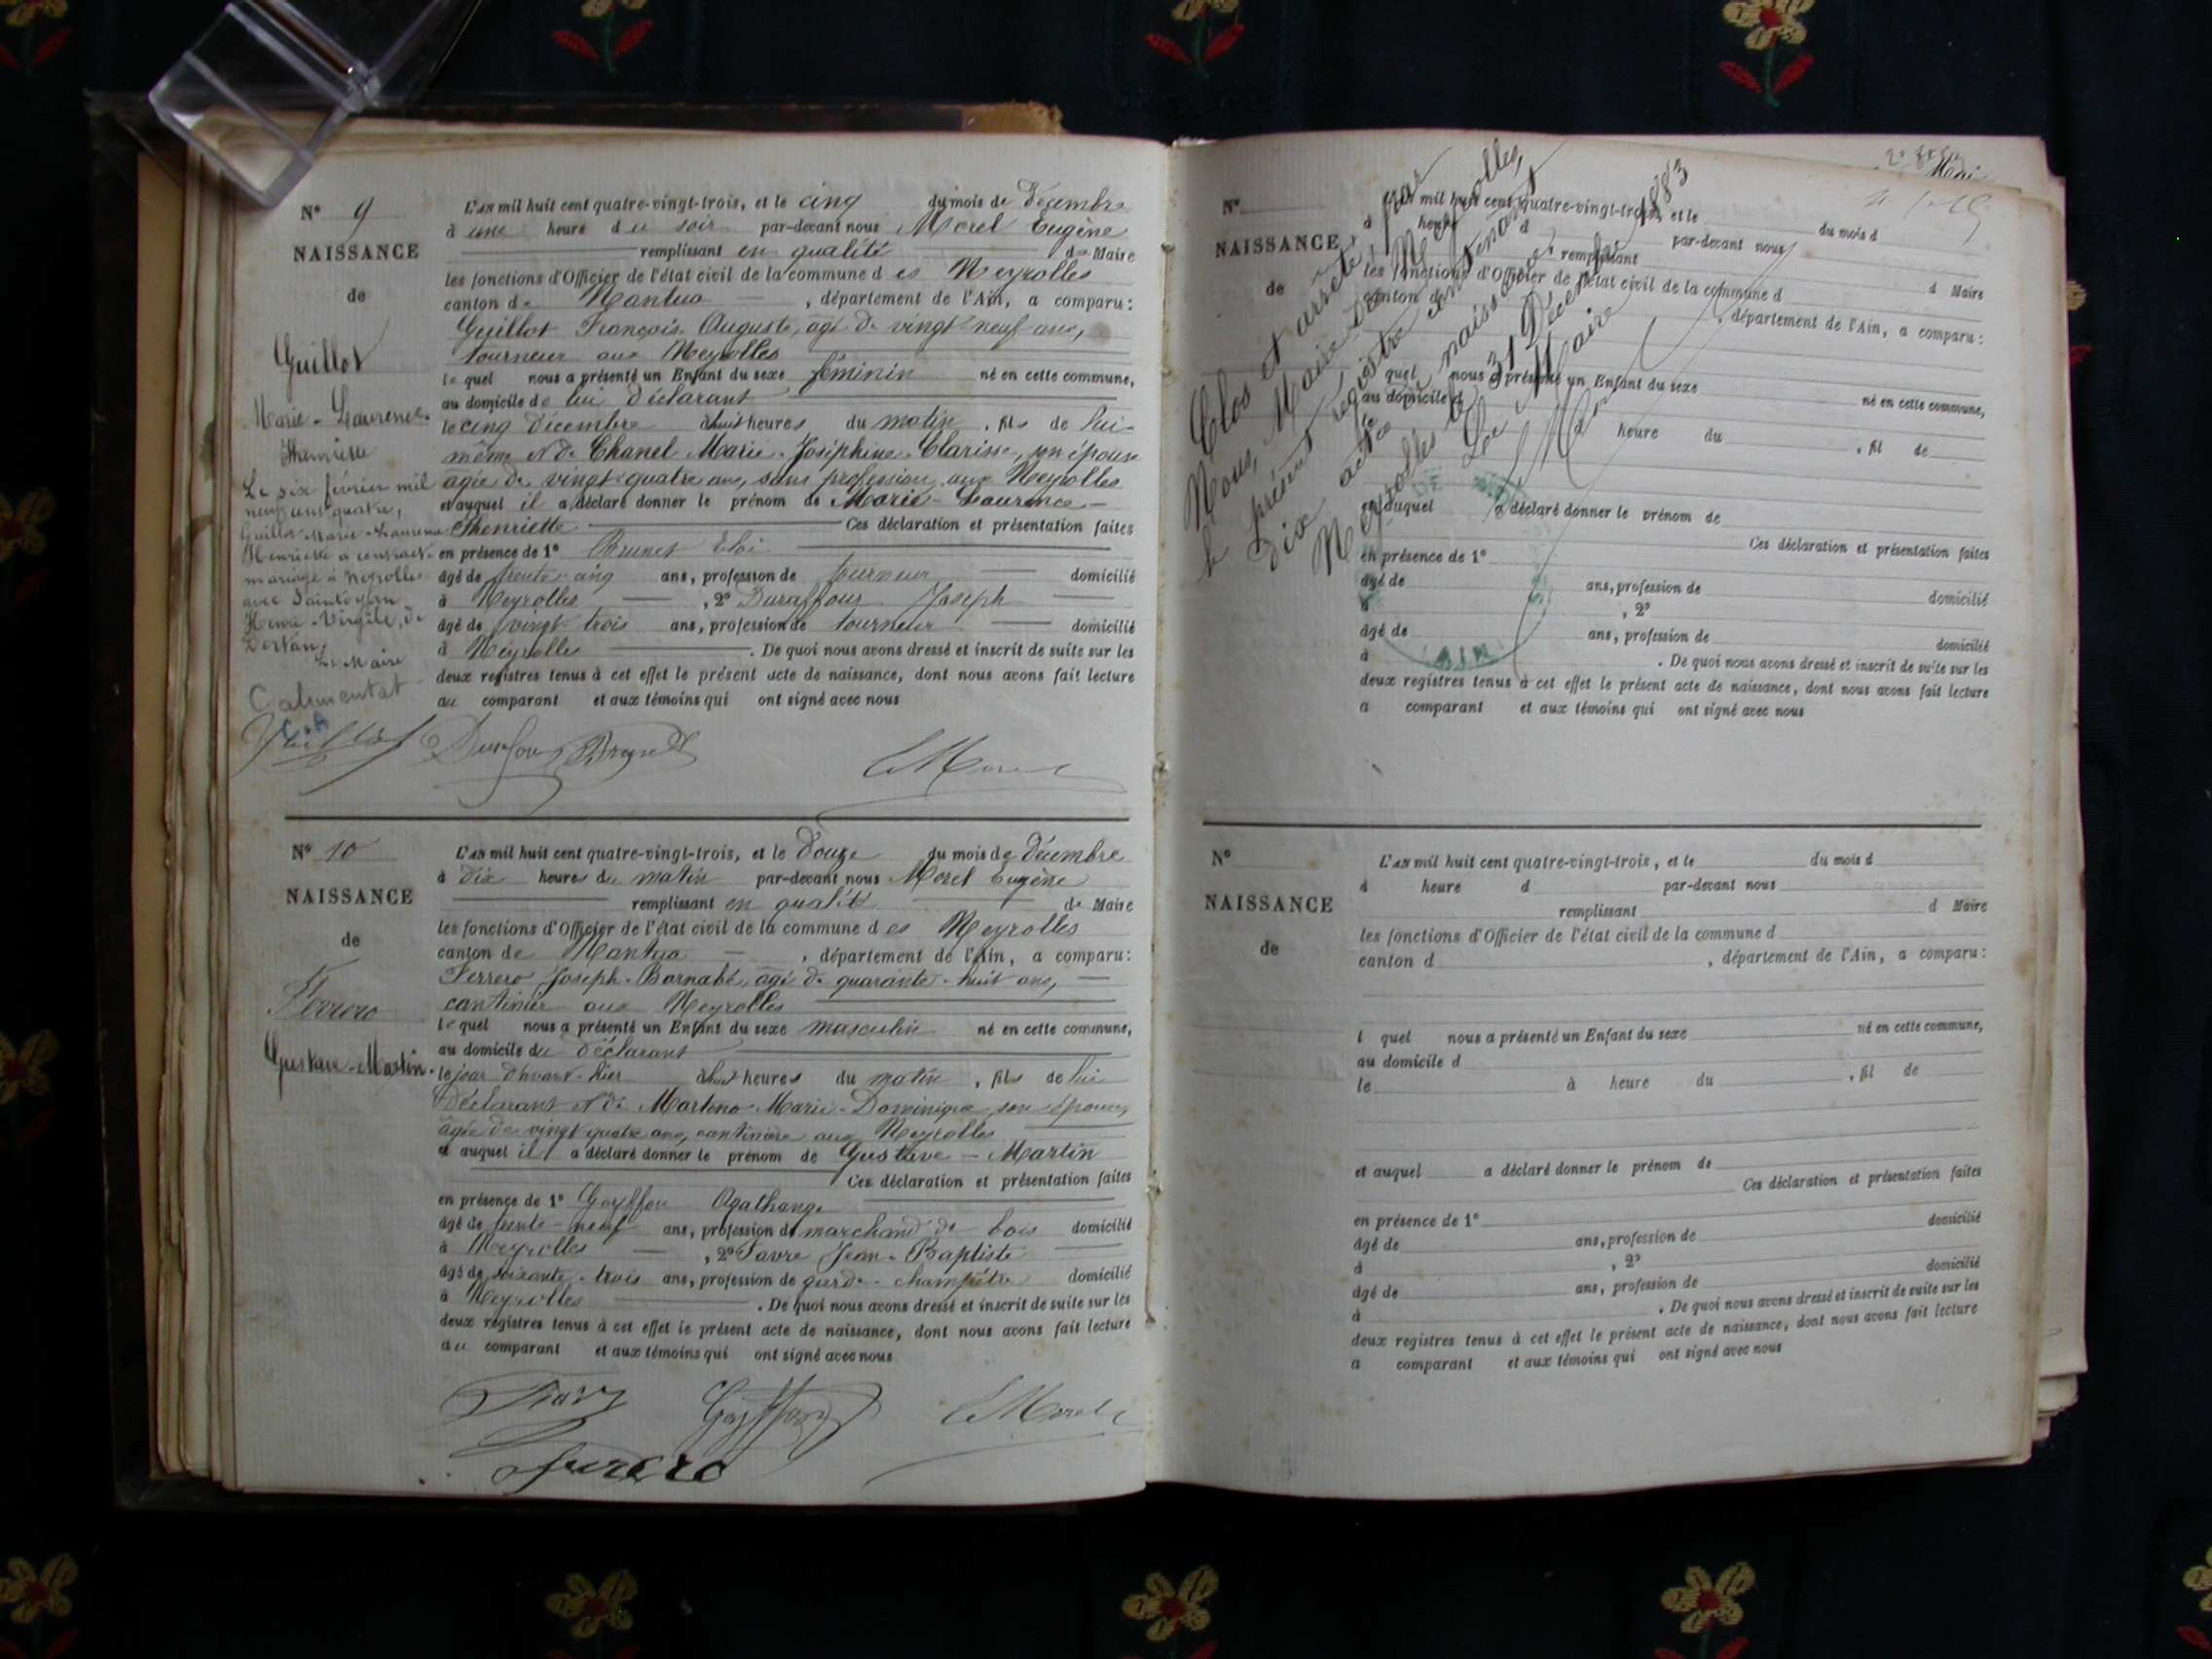 N° 9
NAISSANCE
de
Guillot
Marie-Laurence
Henriette
Le six février mil
neuf cent quatre,
Guillot Marie-Laurence
Henriette a contracté
mariage à Neyrolles
avec
Henri-Virgile, de
Dortan,
Le Maire
L'an mil huit cent quatre-vingt-trois, et le cinq du mois de Décembre
à une heure du soir par-devant nous Morel Eugène
remplissant en qualité de Maire
les fonctions d'Officier de l'état civil de la commune des Neyrolles
canton de Nantua, département de l'Ain, a comparu:
Guillot François-Auguste, âgé de vingt-neuf ans,
tourneur aux Neyrolles
lequel nous a présenté un Enfant du sexe féminin né en cette commune,
au domicile de lui déclarant
le cinq Décembre à huit heures du matin, fils de lui-
même et de Chanel Marie-Joséphine-Clarisse, son épouse
âgée de vingt-quatre ans, sans profession, aux Neyrolles
et auquel il a déclaré donner le prénom de Marie-Laurence-
Henriette Ces déclaration et présentation faites
en présence de 1° Brunet Eloi
âgé de trente-cinq ans, profession de tourneur domicilié
à Neyrolles, 2° Duraffour Joseph
âgé de vingt-trois ans, profession de tourneur domicilié
à Neyrolles. De quoi nous avons dressé et inscrit de suite sur les
deux registres tenus à cet effet le présent acte de naissance, dont nous avons fait lecture
au comparant et aux témoins qui ont signé avec nous
Guillot Duraffour Brunet E Morel
N° 10
NAISSANCE
de
Ferrero
Gustave-Martin.
L'an mil huit cent quatre-vingt-trois, et le Douze du mois de Décembre
à dix heures du matin par-devant nous Morel Eugène
remplissant en qualité de Maire
les fonctions d'Officier de l'état civil de la commune des Neyrolles
canton de Nantua, département de l'Ain, a comparu:
Ferrero Joseph-Barnabé, âgé de quarante-huit ans,
cantinier aux Neyrolles
lequel nous a présenté un Enfant du sexe masculin né en cette commune,
au domicile du déclarant
le jour d'avant-hier à huit heures du matin, fils de lui
déclarant et de Marteno Marie-Dominique son épouse,
âgée de vingt-quatre ans, cantinière aux Neyrolles
et auquel il a déclaré donner le prénom de Gustave-Martin
Ces déclaration et présentation faites
en présence de 1° Goyffon Agathange
âgé de trente-neuf ans, profession de marchand de bois domicilié
à Neyrolles, 2° Favre Jean-Baptiste
âgé de soixante-trois ans, profession de garde-champêtre domicilié
à Neyrolles. De quoi nous avons dressé et inscrit de suite sur les
deux registres tenus à cet effet le présent acte de naissance, dont nous avons fait lecture
au comparant et aux témoins qui ont signé avec nous
Favre Goyffon E Morel
Ferrero
Clos et arrêté par
Nous, Maire des Neyrolles,
le présent registre contenant
dix actes de naissance
Neyrolles le 31 Décembre 1883
Le Maire
E Morel
AIN
N°
NAISSANCE
de
L'an mil huit cent quatre-vingt-trois, et le du mois d
à heure d par-devant nous
remplissant d Maire
les fonctions d'Officier de l'état civil de la commune d
canton d, département de l'Ain, a comparu:
l quel nous a présenté un Enfant du sexe né en cette commune,
au domicile d
le à heure du, fil de
et auquel a déclaré donner le prénom de
Ces déclaration et présentation faites
en présence de 1°
âgé de ans, profession de domicilié
à, 2°
âgé de ans, profession de domicilié
à. De quoi nous avons dressé et inscrit de suite sur les
deux registres tenus à cet effet le présent acte de naissance, dont nous avons fait lecture
a comparant et aux témoins qui ont signé avec nous
N°
NAISSANCE
de
L'an mil huit cent quatre-vingt-trois, et le du mois d
à heure d par-devant nous
remplissant d Maire
les fonctions d'Officier de l'état civil de la commune d
canton d, département de l'Ain, a comparu:
l quel nous a présenté un Enfant du sexe né en cette commune,
au domicile d
le à heure du, fil de
et auquel a déclaré donner le prénom de
Ces déclaration et présentation faites
en présence de 1°
âgé de ans, profession de domicilié
à, 2°
âgé de ans, profession de domicilié
à. De quoi nous avons dressé et inscrit de suite sur les
deux registres tenus à cet effet le présent acte de naissance, dont nous avons fait lecture
a comparant et aux témoins qui ont signé avec nous